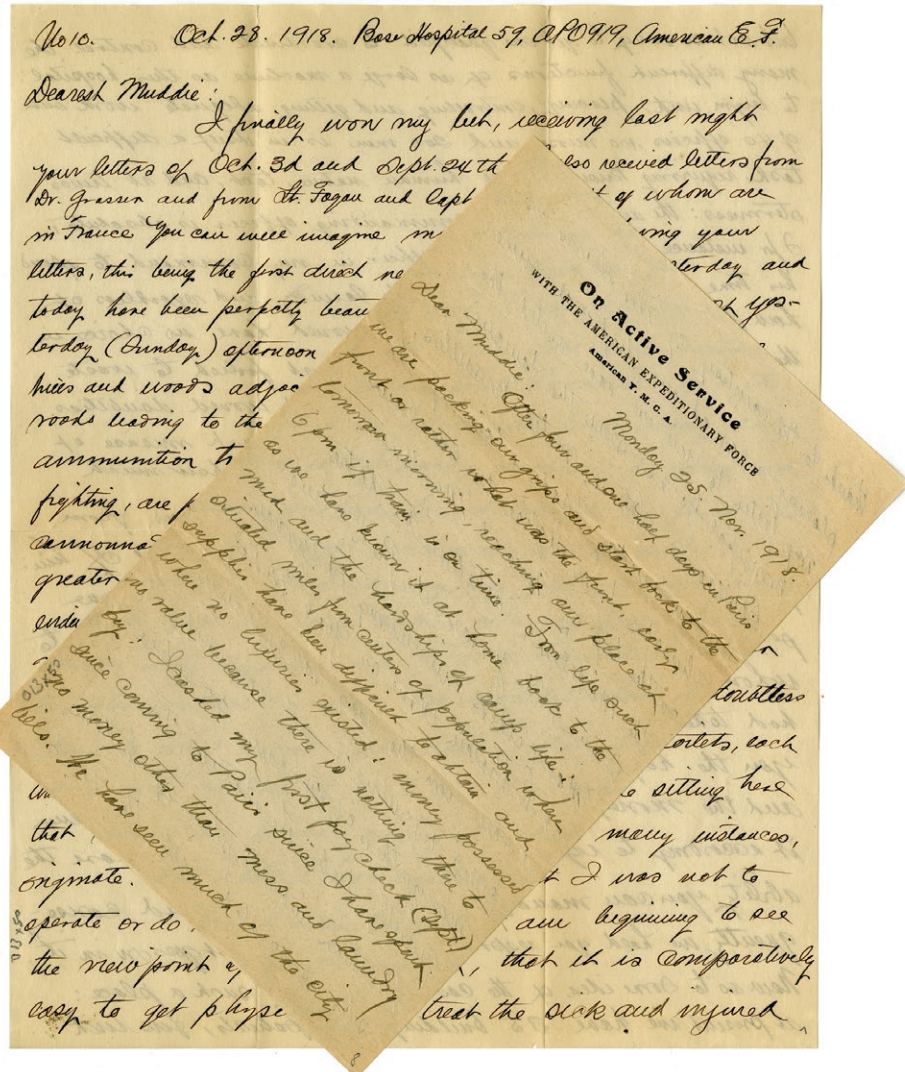 No 10. Oct. 28. 1918. Base Hospital 59, APO 919, American E. F.
Dearest Muddie:
I finally won my bet, receiving last night
your letters of Oct. 3d and Sept. 24th also received letters from
Dr. Grasser and from Lt. Fagan and Capt of whom are
in France You can well imagine ving your
letters, this being the first direct terday and
today have been perfectly yes-
terday (Sunday) afternoon
hills and woods
roads leading to the
ammunition
fighting, are
greater
doubtless
toilets, each
sitting here
that many instances,
originate. I was not to
operate or do am beginning to see
the viewpoint that it is comparatively
easy to get treat the sick and injured
On Active Service
WITH THE AMERICAN EXPEDITIONARY FORCE
American Y. M. C. A.
Monday 25. Nov. 1918.
Dear Muddie: After four and one half days in Paris
we are packing our grips and start back to the
front or rather what was the front, early
tomorrow morning, reaching our place at
6 pm if train is on time. From life such
as we have known it at home back to the
mud and the hardships of camp life;
situated miles from centers of population where
supplies have been difficult to obtain and
where no luxuries existed; money possessed
no value because there is nothing there to
buy. I cashed my first pay check (Sept)
since coming to Paris since I have spent
no money other than mess and laundry
bills. We have seen much of the city
013x50
013x50
8